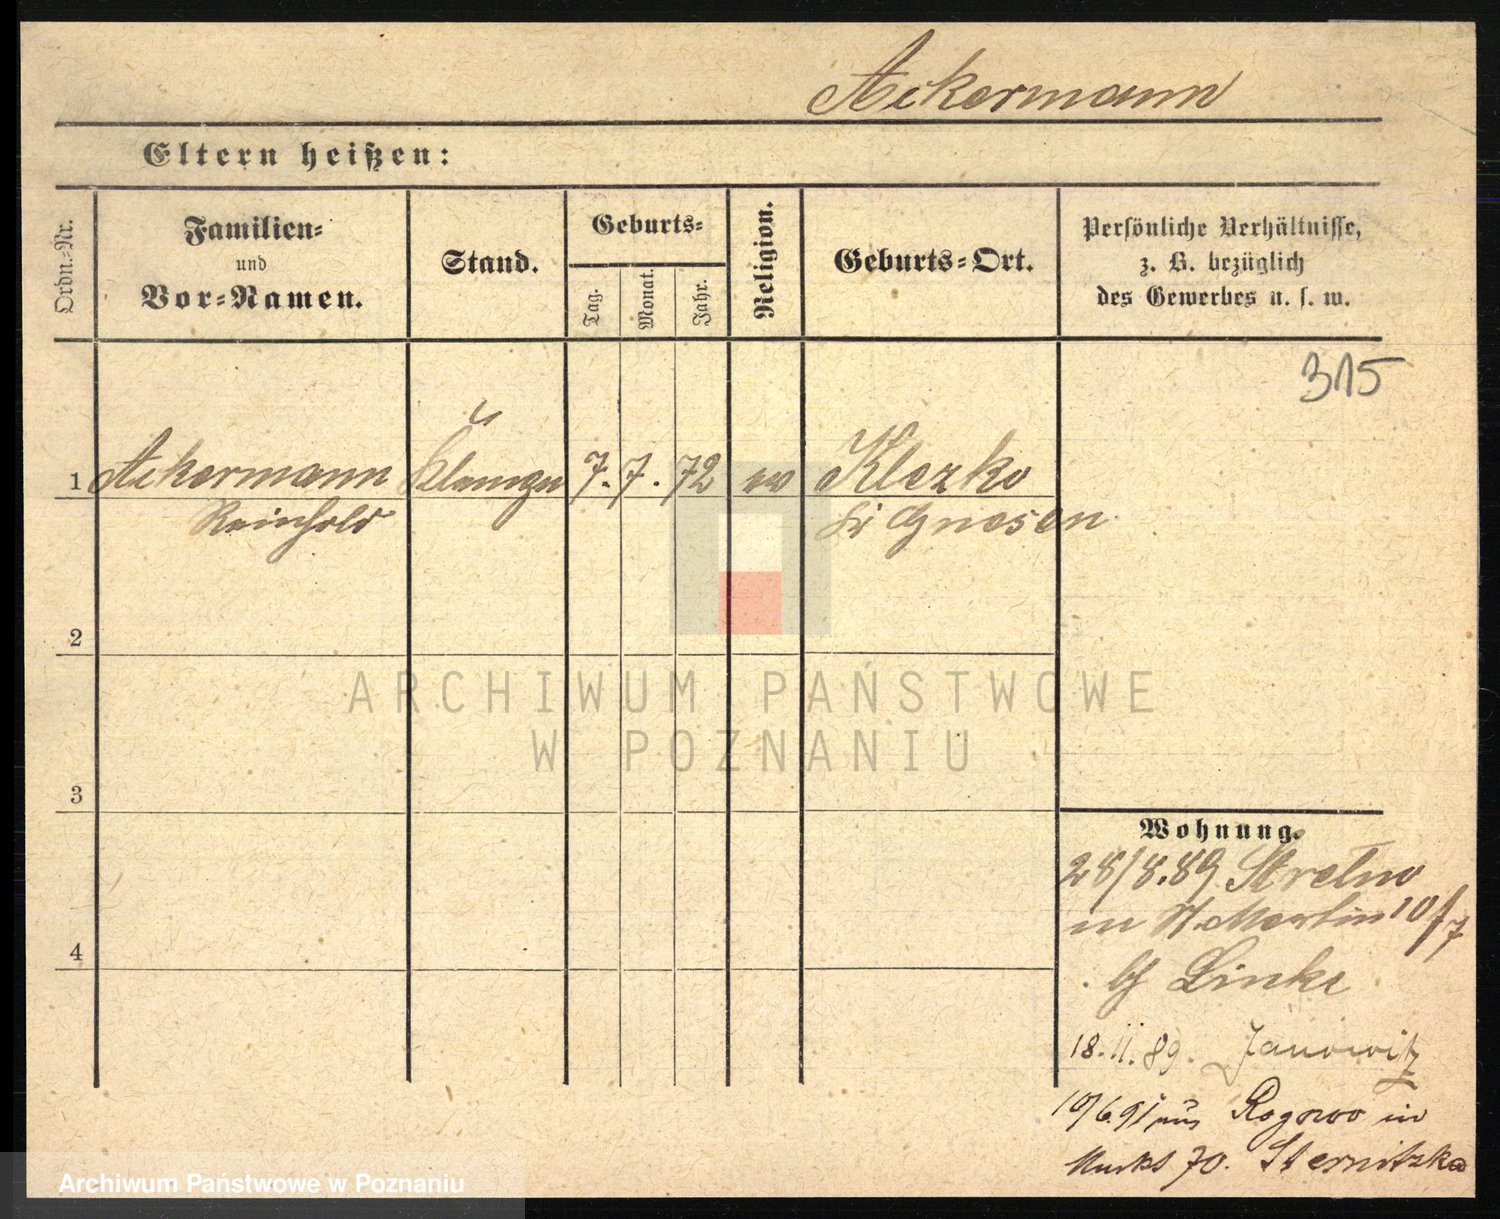 Ackermann
Eltern heißen:
Ordn.-Nr.
Familien-
und
Vor-Namen.
Stand.
Geburts-
Tag.
Monat.
Jahr.
Religion.
Geburts-Ort.
Persönliche Verhältnisse,
z. B. bezüglich
des Gewerbes u. s. w.
315
1 Ackermann 7. 7. 72 ev Klezko
Reinhold Kr Gnesen
2
ARCHIWUM PAŃSTWOWE
W POZNANIU
3
Wohnung.
28/8.89 Strelno
in St. Martin 10/7
4
bf Linke
18.11.89. Janowitz
10/6.91 aus Rogowo in
Markt 70. Sternitzka
Archiwum Państwowe w Poznaniu